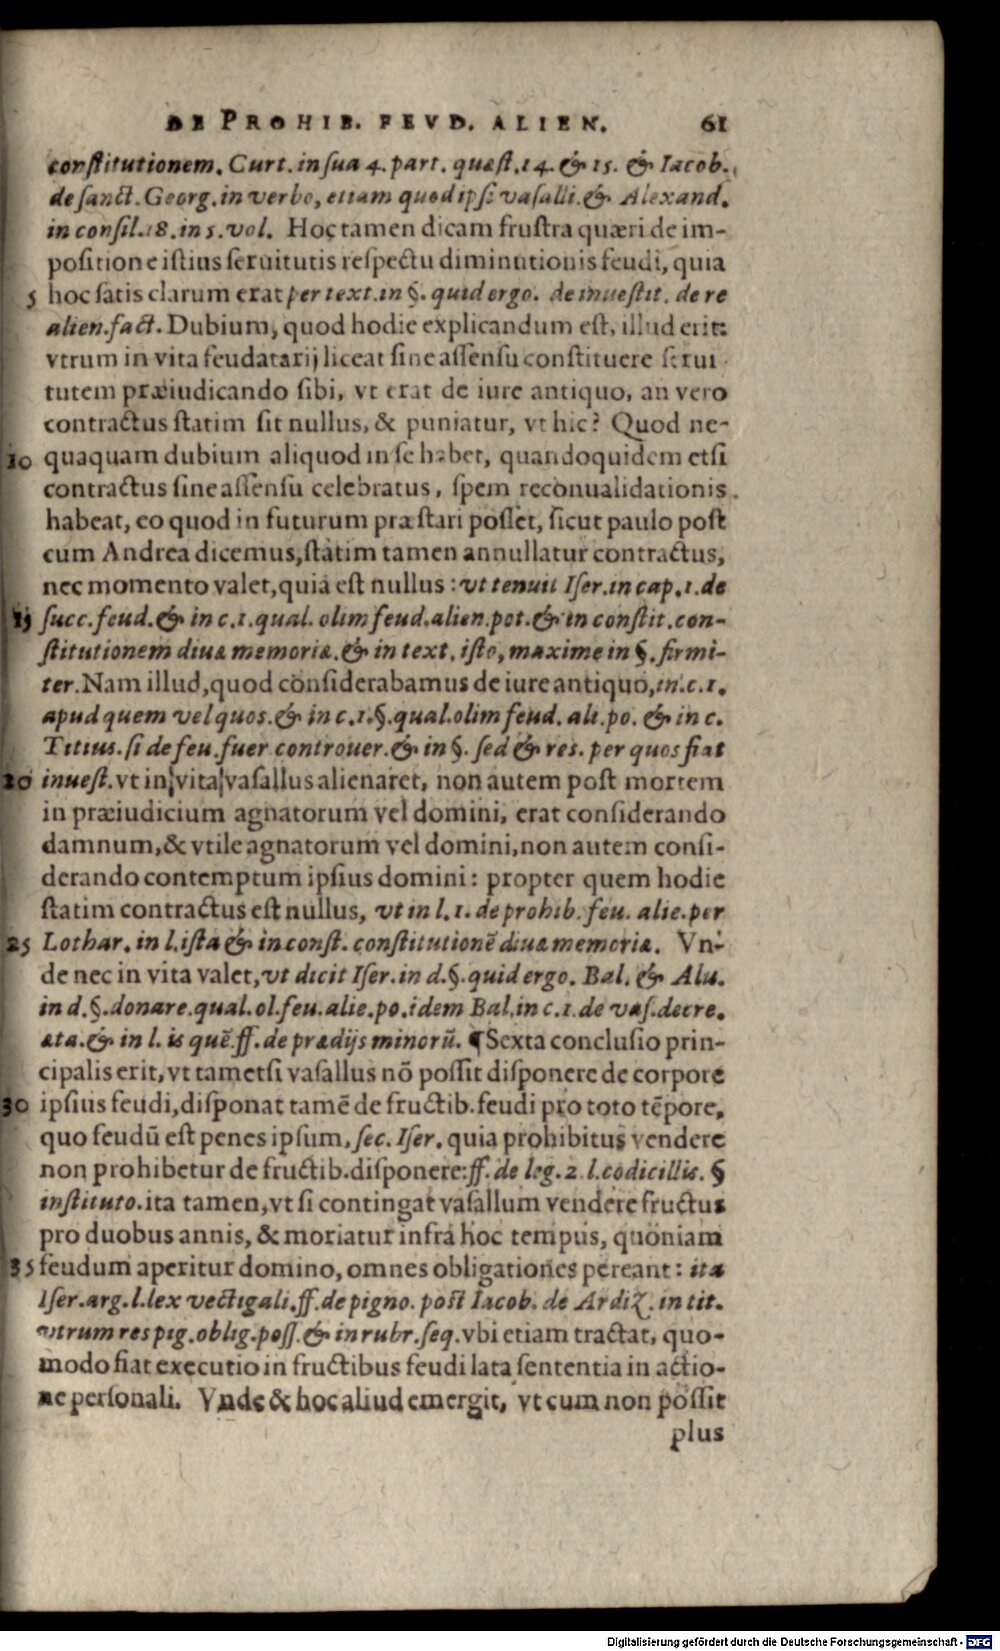 DE PROHIB. FEVD. ALIEN. 61
constitutionem. Curt. in sua 4. part. quæst. 14. & 15. & Iacob.
de sanct. Georg. in verbo, etiam quod ipsi vasalli. & Alexand.
in consil. 18. in 5. vol. Hoc tamen dicam frustra quæri de im-
positione istius seruitutis respectu diminutionis feudi, quia
5 hoc satis clarum erat per text. in §. quid ergo. de inuestit. de re
alien. fact. Dubium, quod hodie explicandum est, illud erit:
vtrum in vita feudatarij liceat sine assensu constituere serui
tutem præiudicando sibi, vt erat de iure antiquo, an vero
contractus statim sit nullus, & puniatur, vt hic? Quod ne-
10 quaquam dubium aliquod in se habet, quandoquidem etsi
contractus sine assensu celebratus, spem reconualidationis
habeat, eo quod in futurum præstari posset, sicut paulo post
cum Andrea dicemus, statim tamen annullatur contractus,
nec momento valet, quia est nullus: vt tenuit Iser. in cap. 1. de
15 succ. feud. & in c. 1. qual. olim feud. alien. pot. & in constit. con-
stitutionem diuæ memoriæ. & in text. isto, maxime in §. firmi-
ter. Nam illud, quod consideràbamus de iure antiquo, in. c. 1.
apud quem vel quos. & in c. 1. §. qual. olim feud. ali. po. & in c.
Titius. si de feu. fuer controuer. & in §. sed & res. per quos fiat
20 inuest. vt in vita vasallus alienaret, non autem post mortem
in præiudicium agnatorum vel domini, erat considerando
damnum, & vtile agnatorum vel domini, non autem consi-
derando contemptum ipsius domini: propter quem hodie
statim contractus est nullus, vt in l. 1. de prohib. feu. alie. per
25 Lothar. in l. ista & in const. constitutionẽ diuæ memoriæ. Vn-
de nec in vita valet, vt dicit Iser. in d. §. quid ergo. Bal. & Alu.
in d. §. donare. qual. ol. feu. alie. po. idem Bal. in c. 1. de vas. decre.
ata. & in l. is quẽ. ff. de prædijs minorũ. ¶ Sexta conclusio prin-
cipalis erit, vt tametsi vasallus nõ possit disponere de corpore
30 ipsius feudi, disponat tamẽ de fructib. feudi pro toto tẽpore,
quo feudũ est penes ipsum, sec. Iser. quia prohibitus vendere
non prohibetur de fructib. disponere: ff. de leg. 2. l. codicillis. §
instituto. ita tamen, vt si contingat vasallum vendere fructus
pro duobus annis, & moriatur infra hoc tempus, quoniam
35 feudum aperitur domino, omnes obligationes pereant: ita
Iser. arg. l. lex vectigali. ff. de pigno. post Iacob. de Ardiz. in tit.
vtrum res pig. oblig. poss. & in rubr. seq. vbi etiam tractat, quo-
modo fiat executio in fructibus feudi lata sententia in actio-
ne personali. Vnde & hoc aliud emergit, vt cum non possit
plus
Digitalisierung gefördert durch die Deutsche Forschungsgemeinschaft - DFG